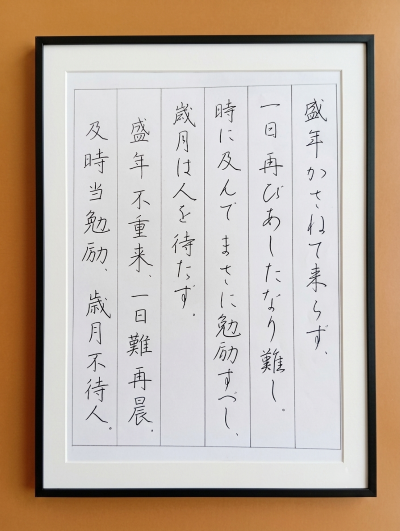 盛年かさねて来らず、
一日再びあしたなり難し。
時に及んでまさに勉励すべし、
歳月は人を待たず。
盛年不重来、一日難再晨。
及時当勉励、歳月不待人。